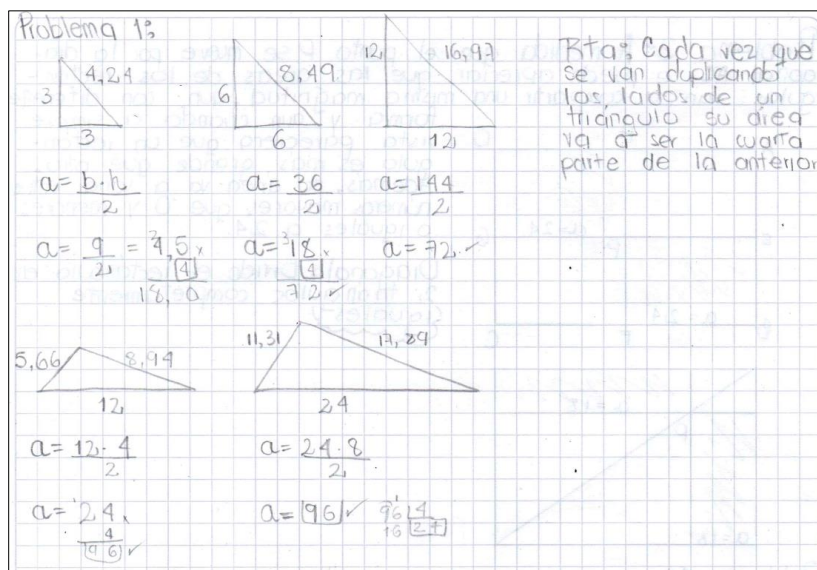 Problema 1:
3 4,24 3
6 8,49 6
12 16,97 12
Rta: Cada vez que
se van duplicando
los lados de un
triángulo su área
va a ser la cuarta
parte de la anterior
a= b·h / 2
a= 36 / 2
a= 144 / 2
a= 9 / 2 = 4,5 x 4
18,0
a= 18 x 4
72 ✓
a= 72 ✓
5,66 8,94 12
11,31 17,89 24
a= 12·4 / 2
a= 24·8 / 2
a= 24 x 4
96 ✓
a= 96 ✓
96 4
16 24